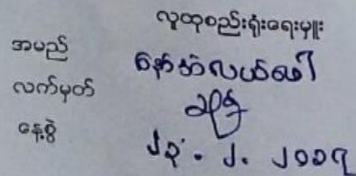 လူထုစည်းရုံးရေးမှူး
အမည် နော်အဲလယ်ဖော
လက်မှတ်
နေ့စွဲ ၂၃. ၂. ၂၀၁၇